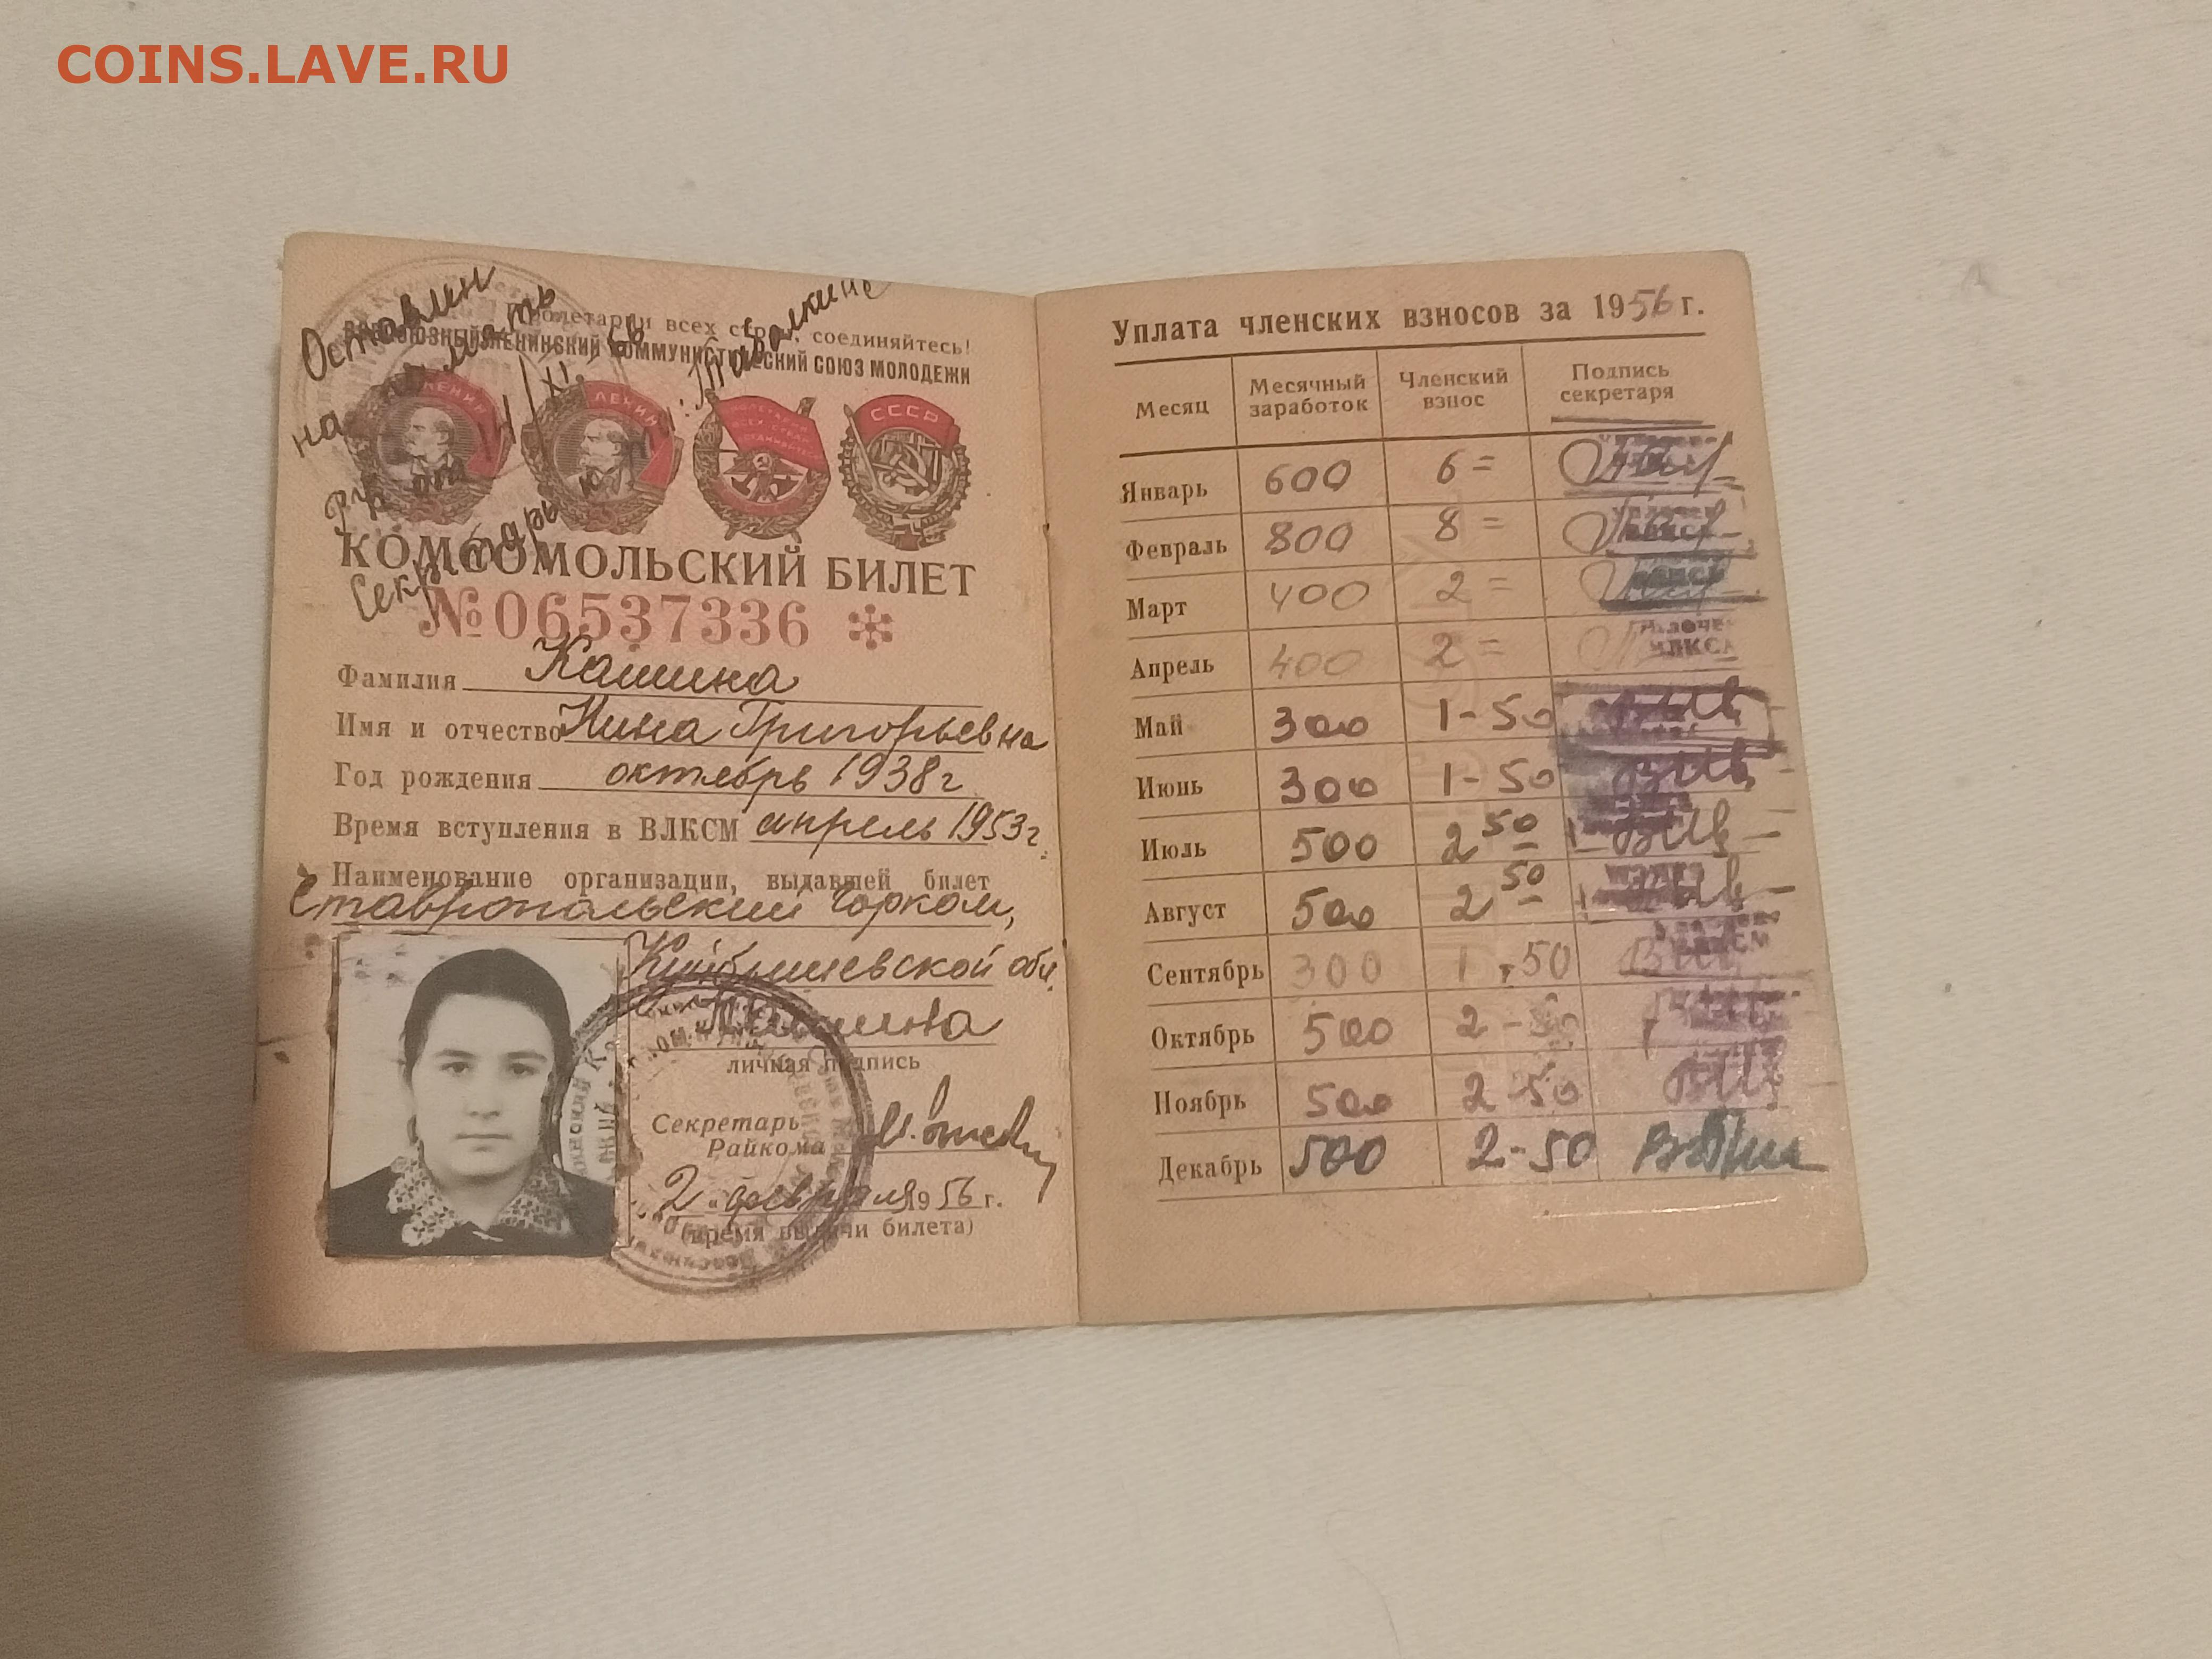 COINS.LAVE.RU
Оставлен
на память
Секретарь
Пролетарии всех стран, соединяйтесь!
ВСЕСОЮЗНЫЙ ЛЕНИНСКИЙ КОММУНИСТИЧЕСКИЙ СОЮЗ МОЛОДЕЖИ
ЛЕНИН
ЛЕНИН
СССР
КОМСОМОЛЬСКИЙ БИЛЕТ
№06537336
Фамилия Кашина
Имя и отчество Нина Григорьевна
Год рождения октябрь 1938 г
Время вступления в ВЛКСМ апрель 1953 г.
Наименование организации, выдавшей билет
Ставропольский Горком,
Куйбышевской обл.
личная подпись
Секретарь
Райкома
2 февраля 1956 г.
(время выдачи билета)
Уплата членских взносов за 1956 г.
Месяц Месячный заработок Членский взнос Подпись секретаря
Январь 600 6 =
Февраль 800 8 =
Март 400 2 =
Апрель 400 2 =
Май 300 1-50
Июнь 300 1-50
Июль 500 2 50
Август 500 2 50
Сентябрь 300 1.50
Октябрь 500 2-50
Ноябрь 500 2-50
Декабрь 500 2-50